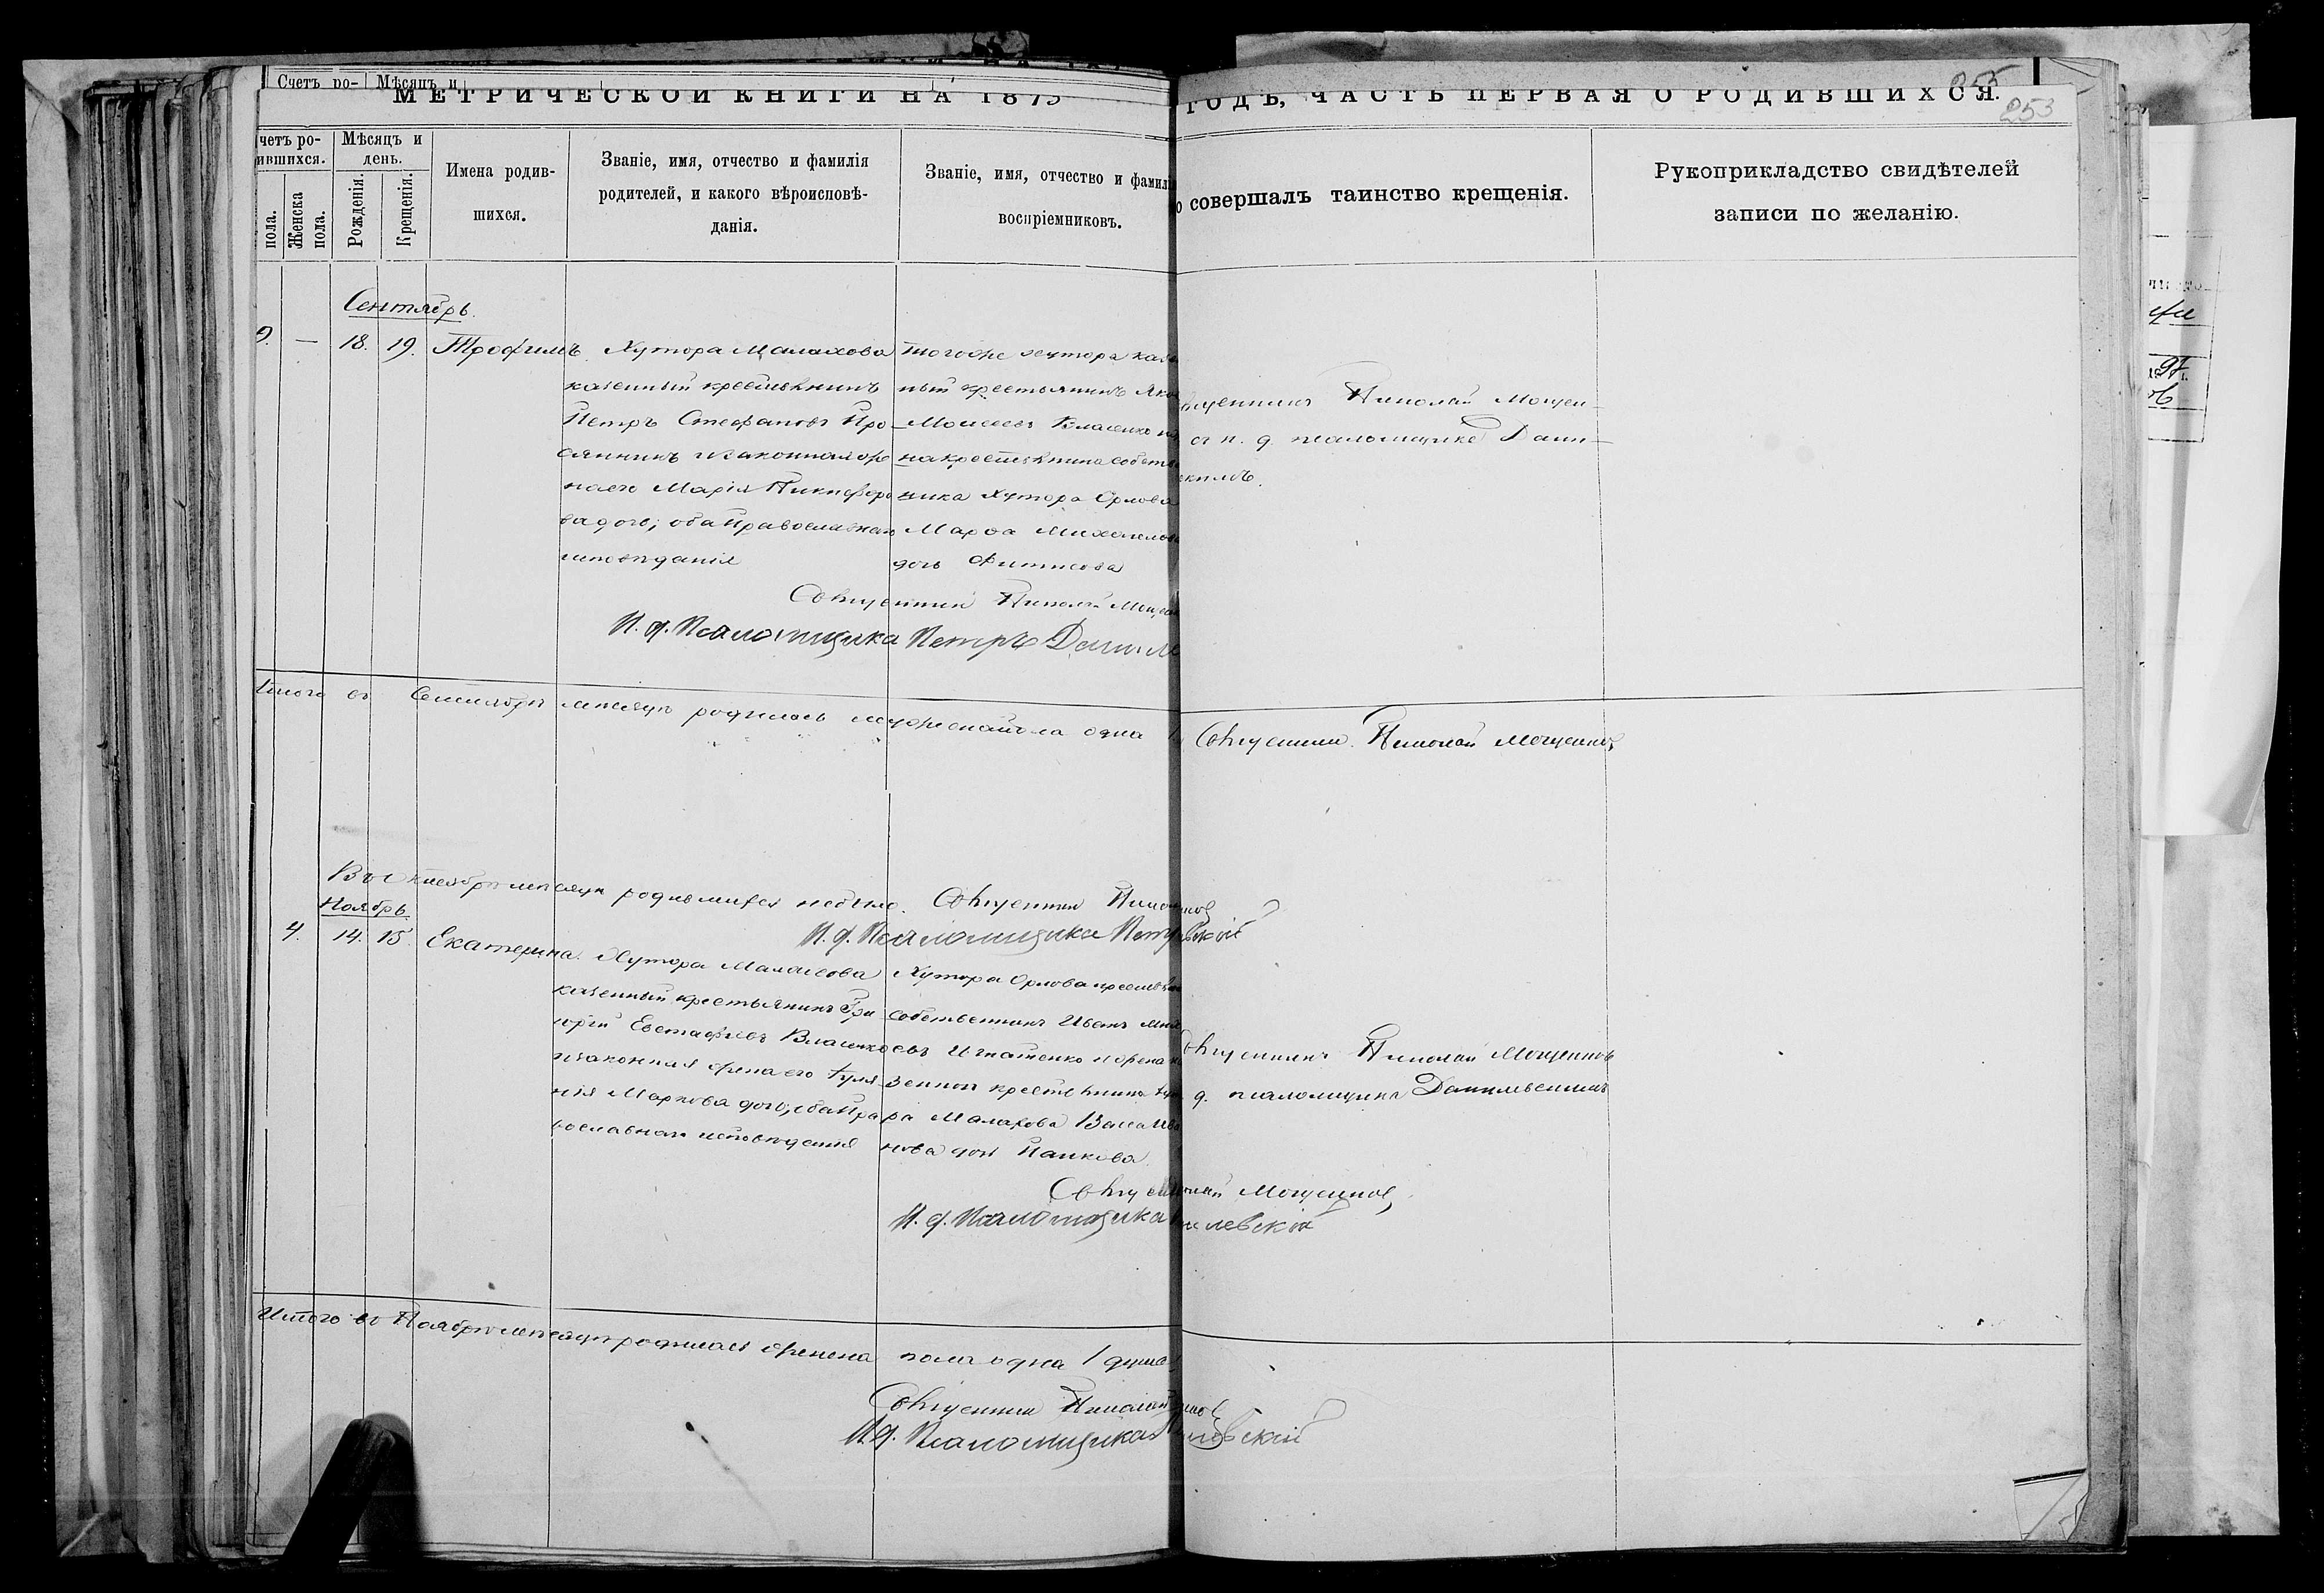 Счетъ ро- Мѣсяцъ и
МЕТРИЧЕСКОЙ КНИГИ НА 1875
ГОДЪ, ЧАСТЬ ПЕРВАЯ О РОДИВШИХСЯ.
255
253
четъ ро-
ившихся.
пола.
Женска
пола.
Мѣсяцъ и
день.
Рожденія.
Крещенія.
Имена родив-
шихся.
Званіе, имя, отчество и фамилія
родителей, и какого вѣроисповѣ-
данія.
Званіе, имя, отчество и фамилі
воспріемниковъ.
о совершалъ таинство крещенія.
Рукоприкладство свидѣтелей
записи по желанію.
Сентябрь.
9. — 18. 19. Трофимъ
Хутора Малахова
казенный крестьянинъ
Петръ Стефановъ Про-
сянникъ и законная же
на его Марія Никифоро
ва дочь; оба Православнаго
исповѣданія
тогоже хутора казе
ный крестьянинъ Яков
Моисеевъ Власенко и
на крестьянина собств
ника Хутора Орлова
Марѳа Михаилова
дочь Фитисова
вященникъ Николай Мощен-
съ и. д. псаломщика Дани-
Священникъ Николай Мощен
И. д. Псаломщика Петръ Данил
Итого въ Сентябрѣ мѣсяцѣ родилось мужескаго пола одна 1
Священникъ Николай Мощенков
Въ Октябрѣ мѣсяцѣ родившихся небыло. Священникъ Никол
И. д. Псаломщика Петр вскій
Ноябрь
4. 14. 15. Екатерина.
Хутора Малахова
казенный крестьянинъ Гри
горій Евстафіевъ Власенко
и законная жена его Іулі-
нія Маркова дочь; оба Пра
вославнаго исповѣданія
Хутора Орлова крестьян
собственникъ Иванъ Мои
евъ Игнатенко и жена ка
зеннаго крестьянина Хуто
ра Малахова Васса Ива
нова дочь Панкова.
Священникъ Николай Мощенков
д. псаломщика Данильевскій
Свяще олай Мощенков
И. д. Псаломщика илевскій
Итого въ Ноябрѣ мѣсяцѣ родилась женска пола одна 1 душа
Священникъ Николай нков
И. д. Псаломщика илевскій